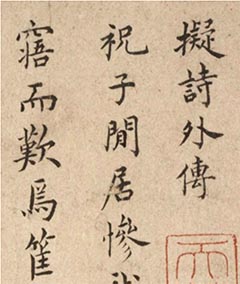 擬詩外傳
祝子閒居慘
寤而歎焉筐